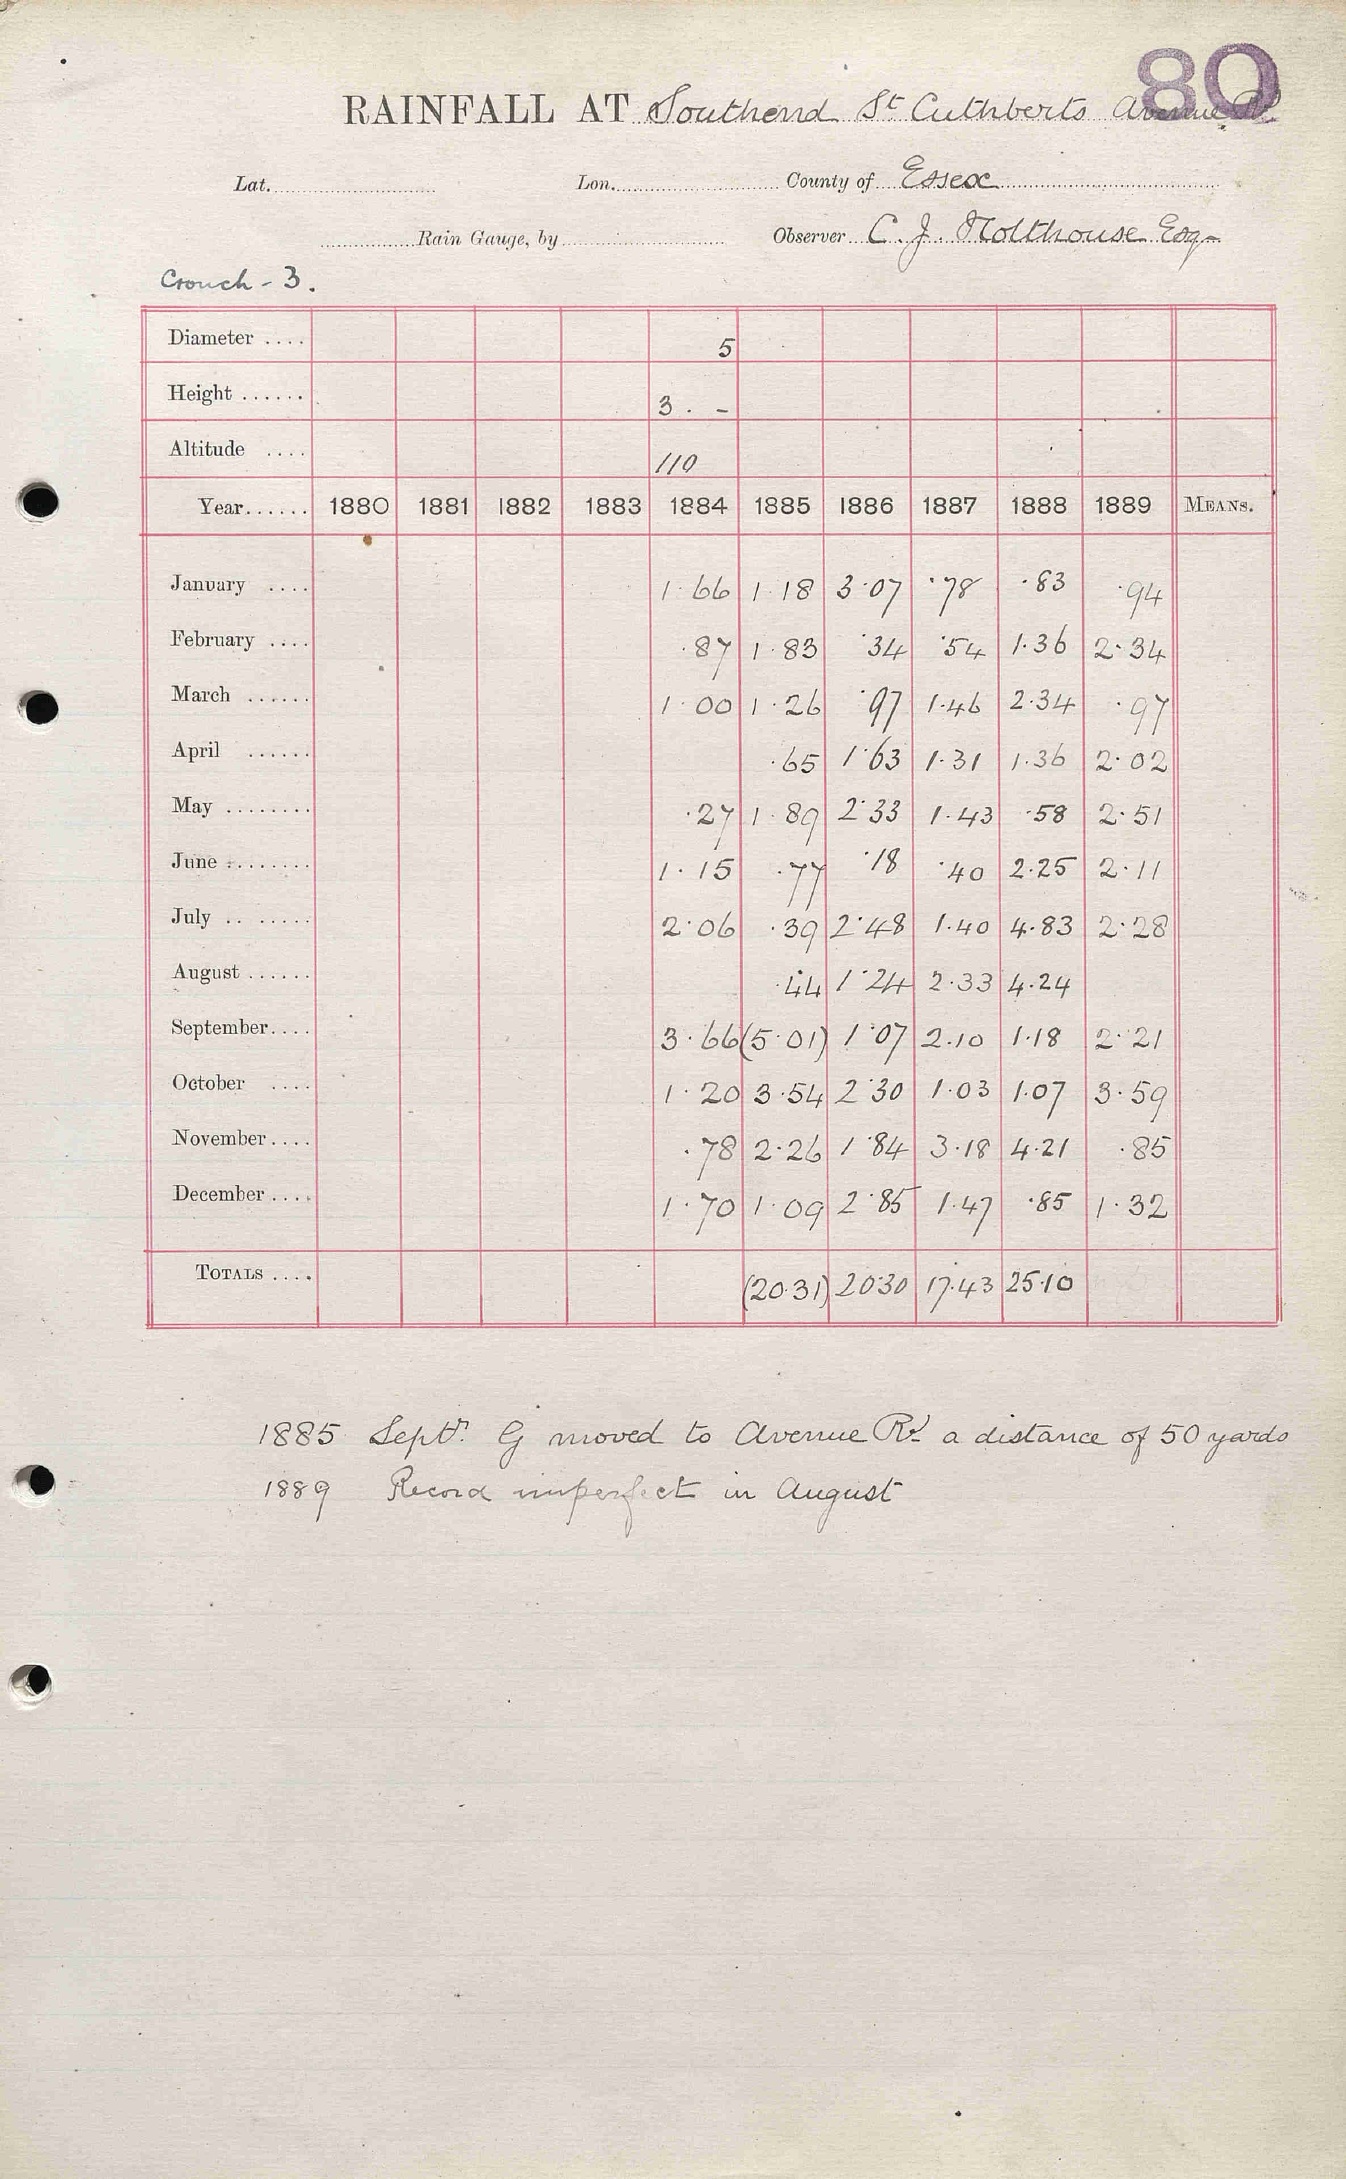 80
RAINFALL AT Southend St Cuthberts Avenue Rd
Lat. Lon. County of Essex
Rain Gauge, by Observer C. J. Molthouse Esq
Crouch - 3.
Diameter .... 5
Height ...... 3 . -
Altitude .... 110
Year...... 1880 1881 1882 1883 1884 1885 1886 1887 1888 1889 MEANS.
January .... 1.66 1.18 3.07 .78 .83 .94
February .... .87 1.83 .34 .54 1.36 2.34
March ...... 1.00 1.26 .97 1.46 2.34 .97
April ...... .65 1.63 1.31 1.36 2.02
May ........ .27 1.89 2.33 1.43 .58 2.51
June ........ 1.15 .77 .18 .40 2.25 2.11
July .. ..... 2.06 .39 2.48 1.40 4.83 2.28
August ...... .44 1.24 2.33 4.24
September.... 3.66 (5.01) 1.07 2.10 1.18 2.21
October .... 1.20 3.54 2.30 1.03 1.07 3.59
November.... .78 2.26 1.84 3.18 4.21 .85
December.... 1.70 1.09 2.85 1.47 .85 1.32
TOTALS .... (20.31) 20.30 17.43 25.10
1885 Septr. G moved to Avenue Rd a distance of 50 yards
1889 Record imperfect in August